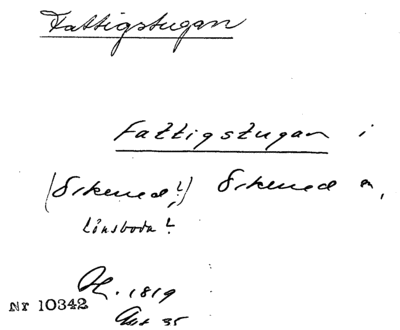 Fattigstugan
Fattigstugan i
(Örkened,?) Örkened n,
Lönsboda?
H. 1819
Nr 10342
35